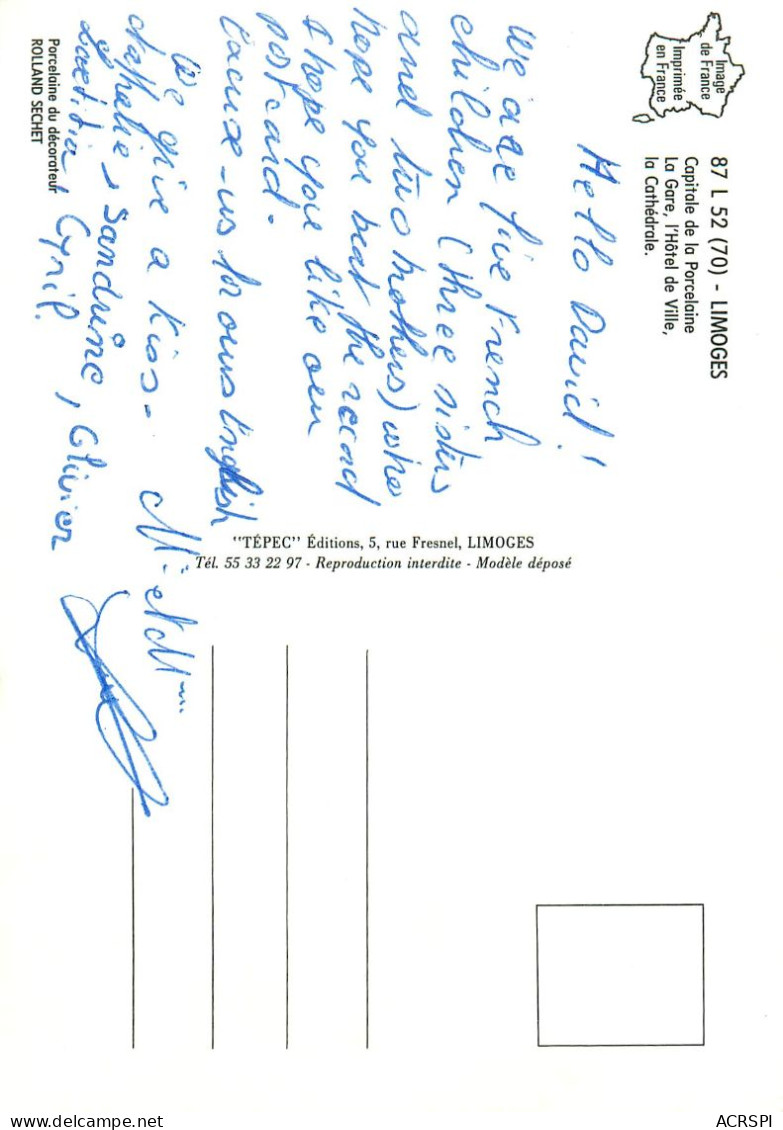 Image
de France
Imprimée
en France
87 L 52 (70) - LIMOGES
Capitale de la Porcelaine
La Gare, l'Hôtel de Ville,
la Cathédrale.
Hello David!
We are five French
children (three sisters
and two brothers) who
hope you beat the record
I hope you like our
postcard.
Excuse-us for ours English
We give a kiss.
Nathalie, Sandrine, Olivier
Laetitia, Cyril.
Mr et Mme
Porcelaine du décorateur
ROLLAND SECHET
"TÉPEC" Éditions, 5, rue Fresnel, LIMOGES
Tél. 55 33 22 97 - Reproduction interdite - Modèle déposé
ACRSPI